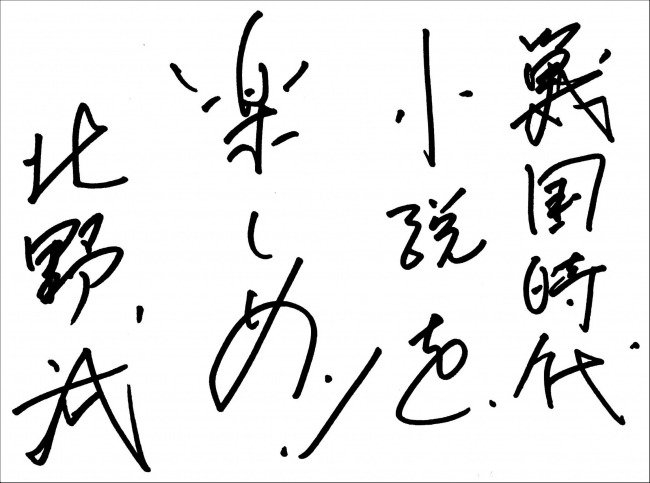 戦国時代
小説を
楽しめ！
北野武